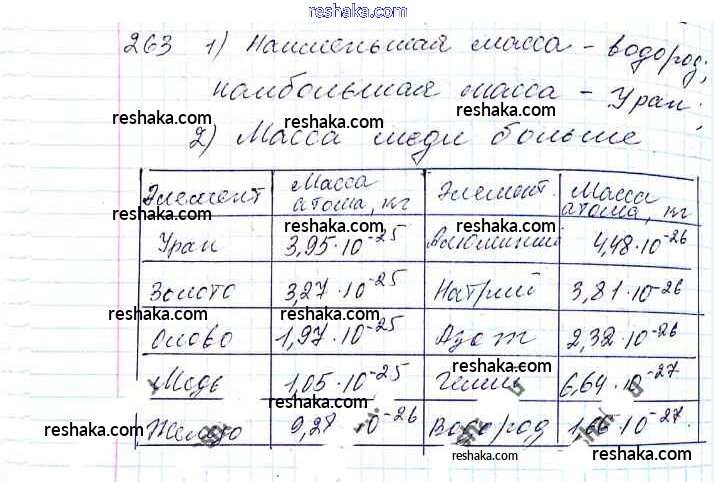 reshaka.com
263 1) Наименьшая масса - водород;
наибольшая масса - Уран;
reshaka.com
reshaka.com
2) Масса меди больше
reshaka.com
reshaka.com
Элемент Масса атома, кг Элемент Масса атома, кг
Уран 3,95·10⁻²⁵ Алюминий 4,48·10⁻²⁶
reshaka.com
reshaka.com
Золото 3,27·10⁻²⁵ Натрий 3,81·10⁻²⁶
reshaka.com
reshaka.com
Олово 1,97·10⁻²⁵ Азот 2,32·10⁻²⁶
reshaka.com
reshaka.com
Медь 1,05·10⁻²⁵ Гелий 6,64·10⁻²⁷
reshaka.com
reshaka.com
Железо 9,28·10⁻²⁶ Водород 1,66·10⁻²⁷